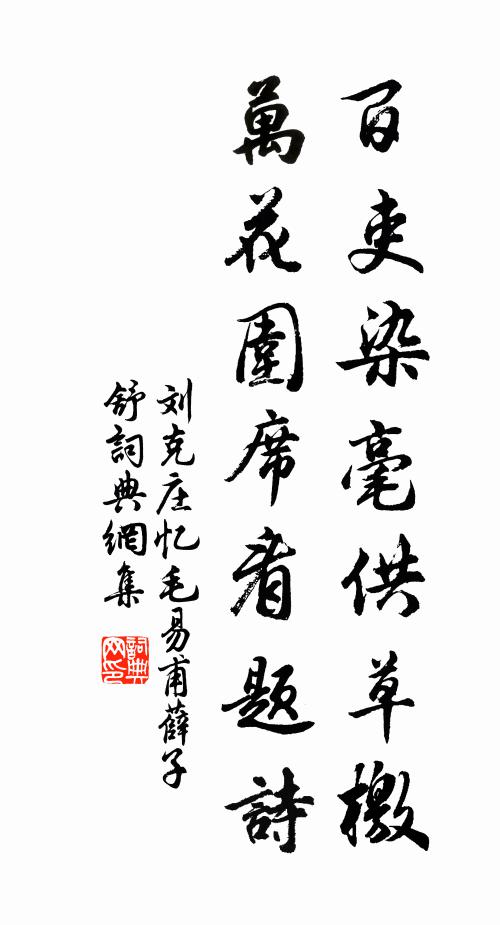 百吏染毫供草檄
萬花圍席看題詩
刘克庄忆毛易甫薛子
舒詞典網集
詞典網印